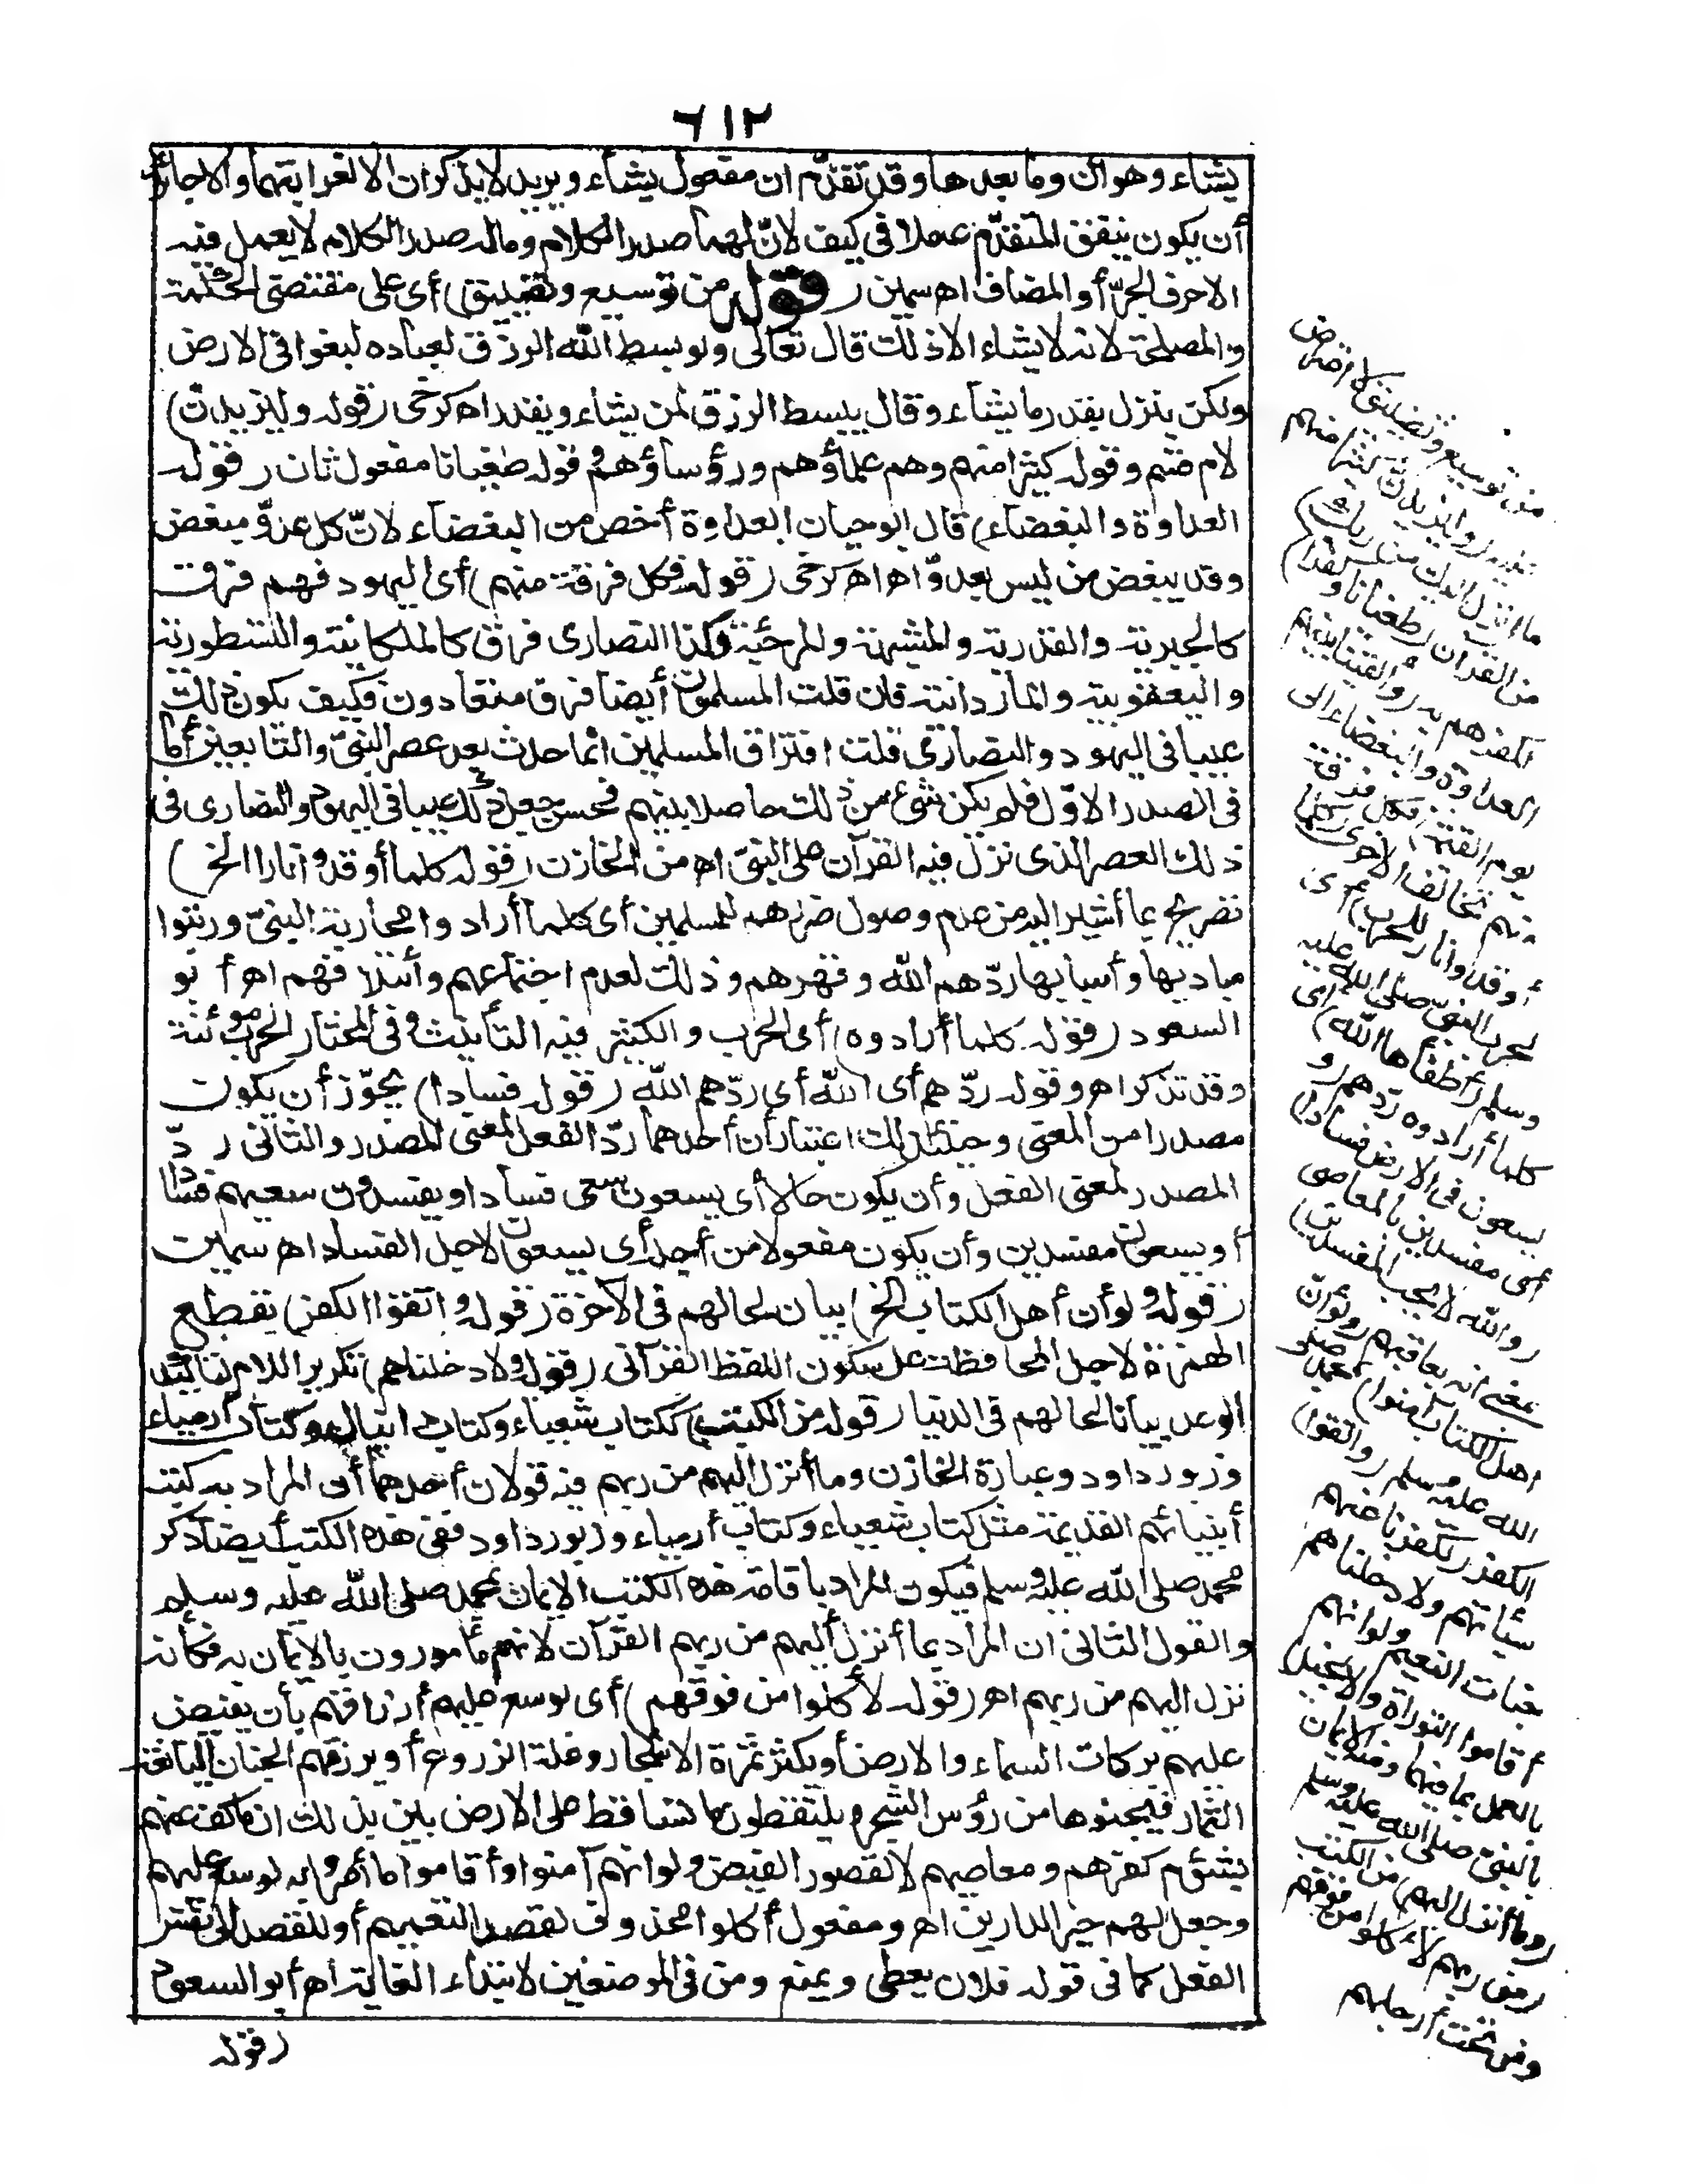 ٦١٢
يشاء وهو أن وما بعدها وقد تقدّم ان مفعول يشاء ويريد لا يذكران الا لغرابتهما والا جائز
أن يكون ينفق المتقدّم عملا في كيف لانّ لهما صدر الكلام وماله صدر الكلام لا يعمل فيه
الا حرف الجرّ أو المضاف اه سمين (قوله من توسيع وتضييق) أي على مقتضى الحكمة
والمصلحة لانه لا يشاء الا ذلك قال تعالى ولو بسط الله الرزق لعباده لبغوا في الارض
ولكن ينزل بقدر ما يشاء وقال يبسط الرزق لمن يشاء ويقدر اه كرخى (قوله وليزيدنّ)
لام قسم وقوله كثيرا منهم وهم علماؤهم ورؤساؤهم وقوله طغيانا مفعول ثان (قوله
العداوة والبغضاء) قال ابو حيان العداوة أخص من البغضاء لانّ كل عدوّ مبغض
وقد يبغض من ليس بعدوّ اه اه كرخى (قوله فكل فرقة منهم) أي اليهود فهم فرق
كالجبرية والقدرية والمشبهة والمرجئة وكذا النصارى فرق كالملكانية والنسطورية
واليعقوبية والماردانية فان قلت المسلمون أيضا فرق متعادون فكيف يكون ذلك
عيبا في اليهود والنصارى قلت افتراق المسلمين انما حدث بعد عصر النبيّ والتابعين أما
في الصدر الاوّل فلم يكن شئ من ذلك حاصلا بينهم فحسن جعل ذلك عيبا في اليهود والنصارى في
ذلك العصر الذي نزل فيه القرآن على النبيّ اه من الخازن (قوله كلما أوقدوا نارا الخ)
تصريح بما أشير اليه من عدم وصول ضررهم للمسلمين أي كلما أرادوا محاربة النبيّ ورتبوا
مباديها وأسبابها ردّهم الله وقهرهم وذلك لعدم اجتماعهم وأئتلافهم اه أبو
السعود (قوله كلما أرادوه) أي الحرب والكثير فيه التأنيث وفي المختار الحرب مؤنثة
وقد تذكر اه وقوله ردّهم أي الله أي ردّهم الله (قوله فسادا) يجوّز أن يكون
مصدرا من المعنى وحينئذ لك اعتباران أحدهما ردّ الفعل لمعنى المصدر والثاني ردّ
المصدر لمعنى الفعل وأن يكون حالا أي يسعون سعى فساد او يفسدون سعيهم فسادا
أو يسعون مفسدين وأن يكون مفعولا من أجله أي يسعون لاجل الفساد اه سمين
(قوله ولو أن أهل الكتاب الخ) بيان لحالهم في الآخرة (قوله واتقوا الكفر) بقطع
الهمزة لاجل المحافظة على سكون اللفظ القرآنى (قوله ولادخلناهم) تكرير اللام لتأكيد
الوعد بيانا لحالهم في الدنيا (قوله من الكتب) ككتاب شعياء وكتاب دانيال وكتاب أرمياء
وزبور داود وعبارة الخازن وما أنزل اليهم من ربهم فيه قولان أحدهما أن المراد به كتب
أنبيائهم القديمة مثل كتاب شعياء وكتاب أرمياء وزبور داود ففي هذه الكتب أيضا ذكر
محمد صلى الله عليه وسلم فيكون المراد باقامة هذه الكتب الايمان بمحمد صلى الله عليه وسلم
والقول الثاني ان المراد بما أنزل اليهم من ربهم القرآن لانهم مأمورون بالايمان به فكأنه
نزل اليهم من ربهم اه (قوله لأكلوا من فوقهم) أي لوسع عليهم أرزاقهم بأن يفيض
عليهم بركات السماء والارض أو يكثر ثمرة الاشجار وغلة الزروع أو يرزقهم الجنان اليانعة
الثمار فيجنوها من رؤس الشجر ويلتقطون ما تساقط على الارض بين بذلك ان ما كف عنهم
بشؤم كفرهم ومعاصيهم لا لقصور الفيض ولو انهم آمنوا وأقاموا ما أمروا به لوسع عليهم
وجعل لهم خير الدارين اه ومفعول أكلوا محذوف لقصد التعميم أو للقصد الى نفس
الفعل كما في قوله فلان يعطى ويمنع ومن في الموضعين لابتداء الغاية اه أبو السعود
(قوله
من توسيع وتضييق لا اعتراض
عليه (وليزيدنّ كثيرا منهم
ما انزل اليك من ربك)
من القرآن (طغيانا وكفرا)
لكفرهم به (وألقينا بينهم
العداوة والبغضاء الى
يوم القيمة) فكل فرقة
منهم تخالف الاخرى (كلما
أوقدوا نارا للحرب) أي
لحرب النبيّ صلى الله عليه
وسلم (أطفأها الله) أي
كلما أرادوه ردّهم (و
يسعون في الارض فسادا)
أي مفسدين بالمعاصي
(والله لا يحب المفسدين)
بمعنى انه يعاقبهم (ولو أنّ
اهل الكتاب آمنوا) بمحمد صلى
الله عليه وسلم (واتقوا)
الكفر (لكفرنا عنهم
سيئاتهم ولادخلناهم
جنات النعيم ولو انهم
أقاموا التوراة والانجيل)
بالعمل بما فيهما ومنه الايمان
بالنبيّ صلى الله عليه وسلم
(وما أنزل اليهم) من الكتب
(من ربهم لأكلوا من فوقهم
ومن تحت أرجلهم